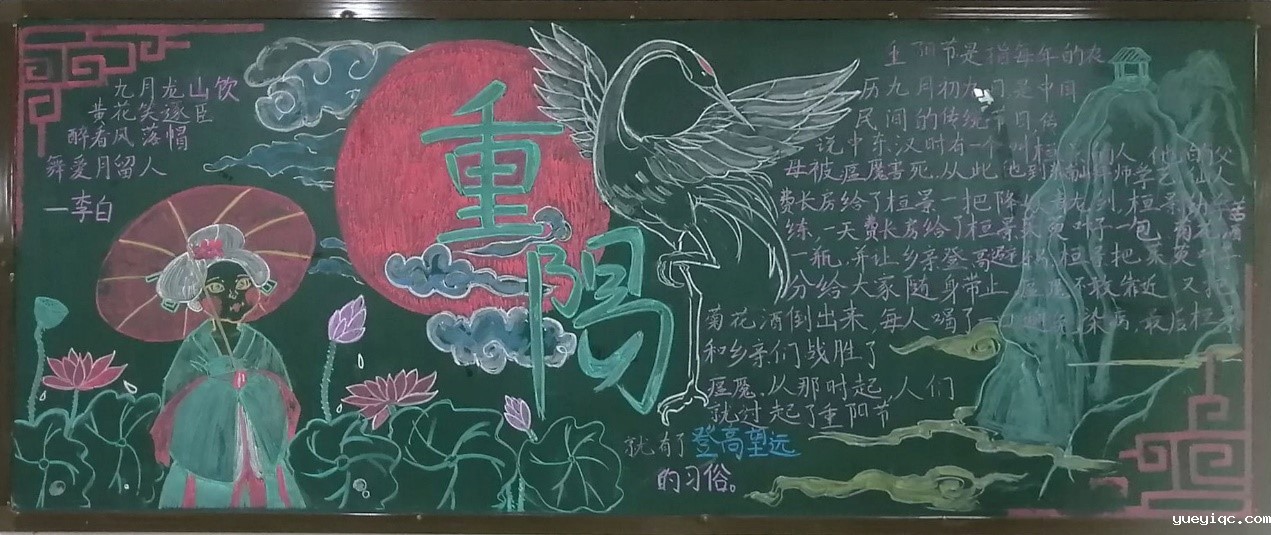 九月龙山饮
黄花笑逐臣
醉看风落帽
舞爱月留人
一李白
重阳
重阳节是指每年的农
历九月初九日是中国
民间的传统节日传
说中东汉时有一个叫桓景的人他的父
母被瘟魔害死.从此,他到
费长房给了桓景一把降
练.一天费长房给了桓景茱萸叶子一包,菊花酒
一瓶,并让乡亲登高避祸桓景把茱萸叶子
分给大家随身带上瘟魔不敢靠近又把
菊花酒倒出来,每人喝了一口避免染病,最后桓景
和乡亲们战胜了
瘟魔、从那时起人们
就过起了重阳节
就有了登高望远
的习俗。
yueyiqc.com